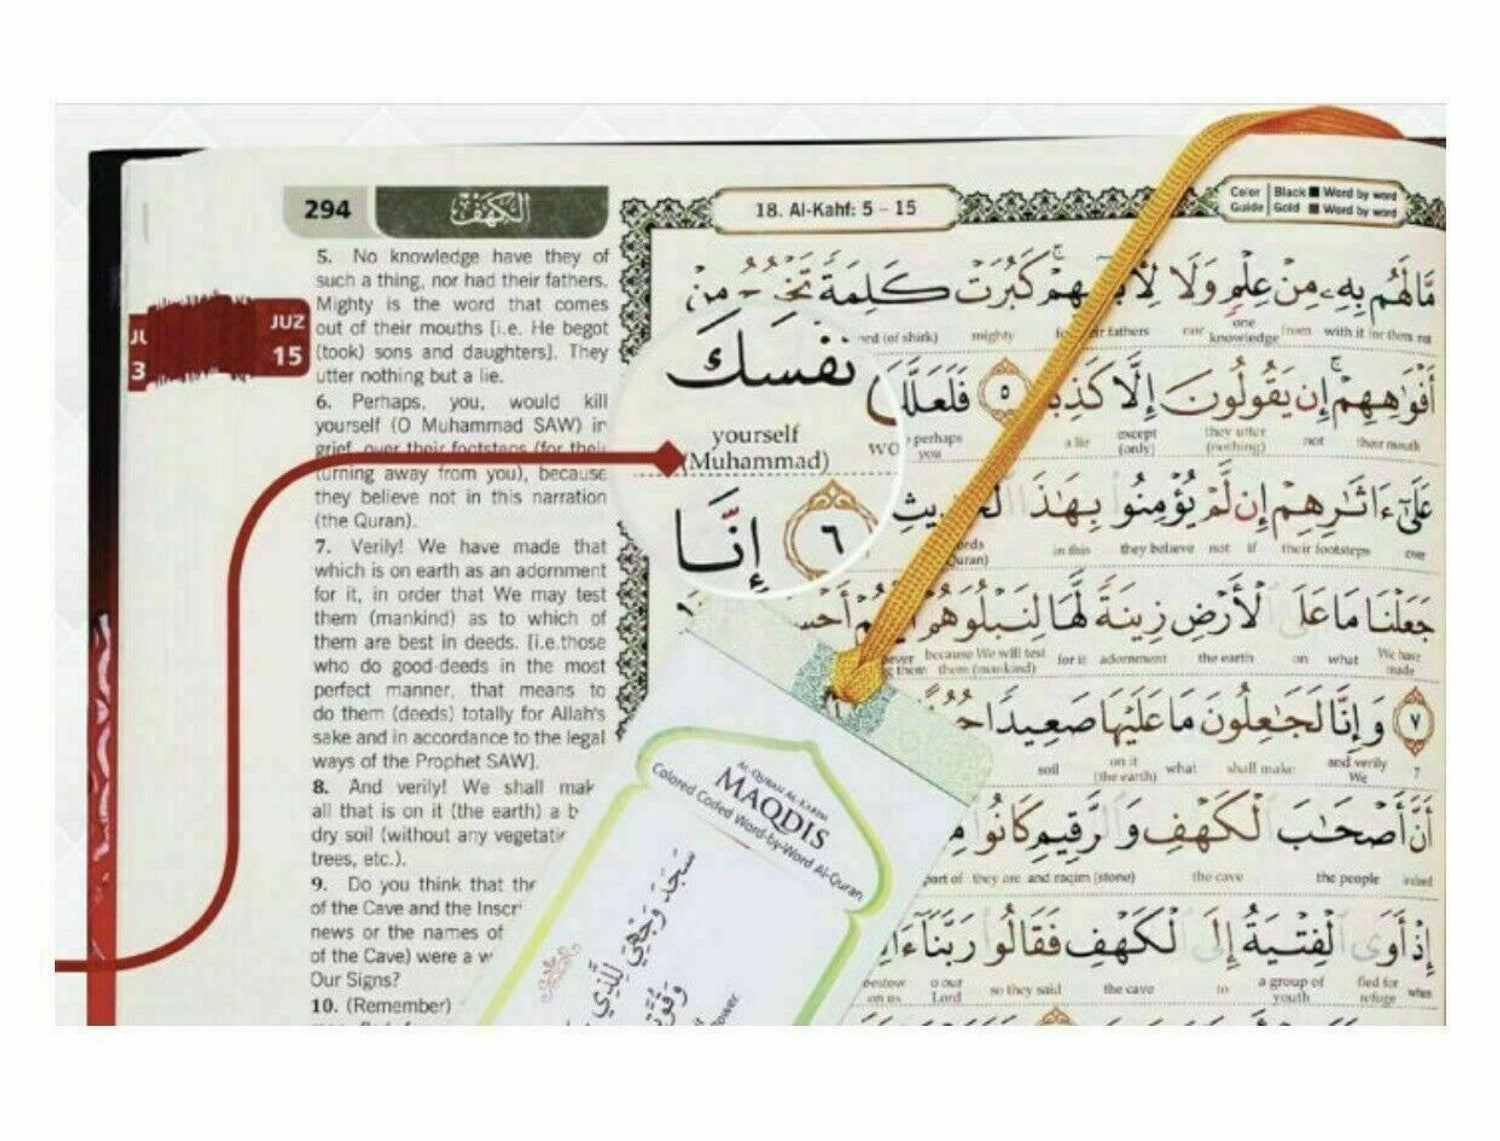 294
الكهف
18. Al-Kahf: 5 - 15
Color Guide
Black ■ Word by word
Gold ■ Word by word
JUZ
15
3
5. No knowledge have they of
such a thing, nor had their fathers.
Mighty is the word that comes
out of their mouths [i.e. He begot
(took) sons and daughters]. They
utter nothing but a lie.
6. Perhaps, you, would kill
yourself (O Muhammad SAW) in
grief, over their footsteps (for their
turning away from you), because
they believe not in this narration
(the Quran).
7. Verily! We have made that
which is on earth as an adornment
for it, in order that We may test
them (mankind) as to which of
them are best in deeds. [i.e.those
who do good deeds in the most
perfect manner, that means to
do them (deeds) totally for Allah's
sake and in accordance to the legal
ways of the Prophet SAW].
8. And verily! We shall mak
all that is on it (the earth) a b
dry soil (without any vegetatir
trees, etc.).
9. Do you think that the
of the Cave and the Inscr
news or the names of
of the Cave) were a w
Our Signs?
10. (Remember)
مَّا لَهُم بِهِۦ مِنْ عِلْمٍ وَلَا لِآبَائِهِمْ ۚ كَبُرَتْ كَلِمَةً تَخْرُجُ مِنْ
(of shirk) mighty fathers nor one knowledge from with it for them not
أَفْوَٰهِهِمْ ۚ إِن يَقُولُونَ إِلَّا كَذِبًا ٥ فَلَعَلَّكَ
perhaps you a lie except (only) they utter (nothing) not their mouth
نَّفْسَكَ
yourself
(Muhammad)
عَلَىٰٓ ءَاثَٰرِهِمْ إِن لَّمْ يُؤْمِنُوا بِهَٰذَا الْحَدِيثِ
in this they believe not if their footsteps over
٦ إِنَّا
جَعَلْنَا مَا عَلَى الْأَرْضِ زِينَةً لَّهَا لِنَبْلُوَهُمْ أَيُّهُمْ أَحْسَ
because We will test them (mankind) for it adornment the earth on what We have made
٧ وَإِنَّا لَجَٰعِلُونَ مَا عَلَيْهَا صَعِيدًا جُرُزًا
soil on it (the earth) what shall make and verily We 7
أَنَّ أَصْحَٰبَ الْكَهْفِ وَالرَّقِيمِ كَانُوا مِ
part of they are and raqim (stone) the cave the people indeed
إِذْ أَوَى الْفِتْيَةُ إِلَى الْكَهْفِ فَقَالُوا رَبَّنَآ ءَاتِ
bestow on us O our Lord so they said the cave to a group of youth fled for refuge when
AL-QURAN AL-KARIM
MAQDIS
Colored Coded Word-by-Word Al-Quran
سَجَدَ وَجْهِيَ لِلَّذِي
وَقُوَّتِ